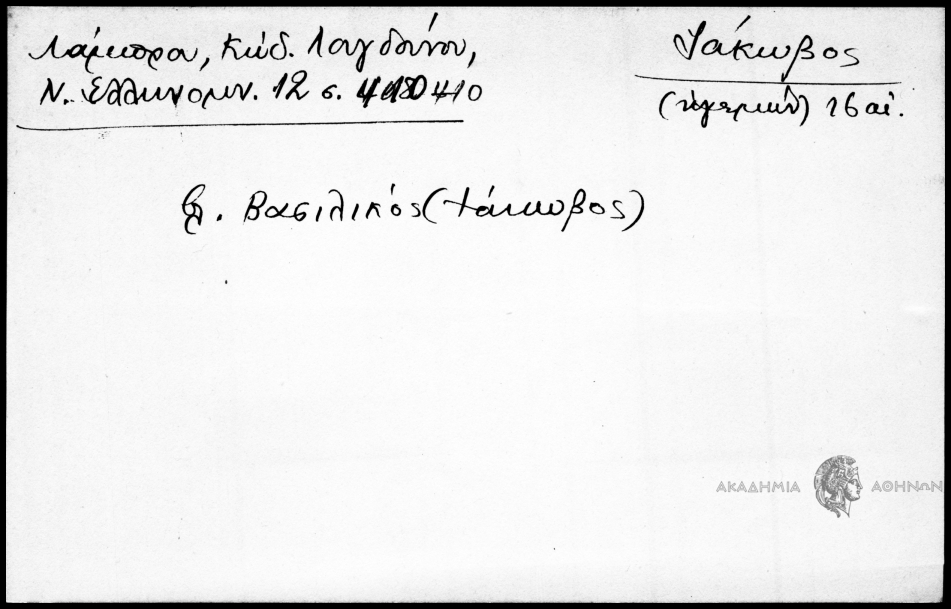 Λάμπρου, Κώδ. Λουγδούνου,
Ν. Ἑλληνομν. 12 σ. 410
Ἰάκωβος
(ἡγεμὼν) 16 αἰ.
βλ. Βασιλικός (Ἰάκωβος)
ΑΚΑΔΗΜΙΑ ΑΘΗΝΩΝ